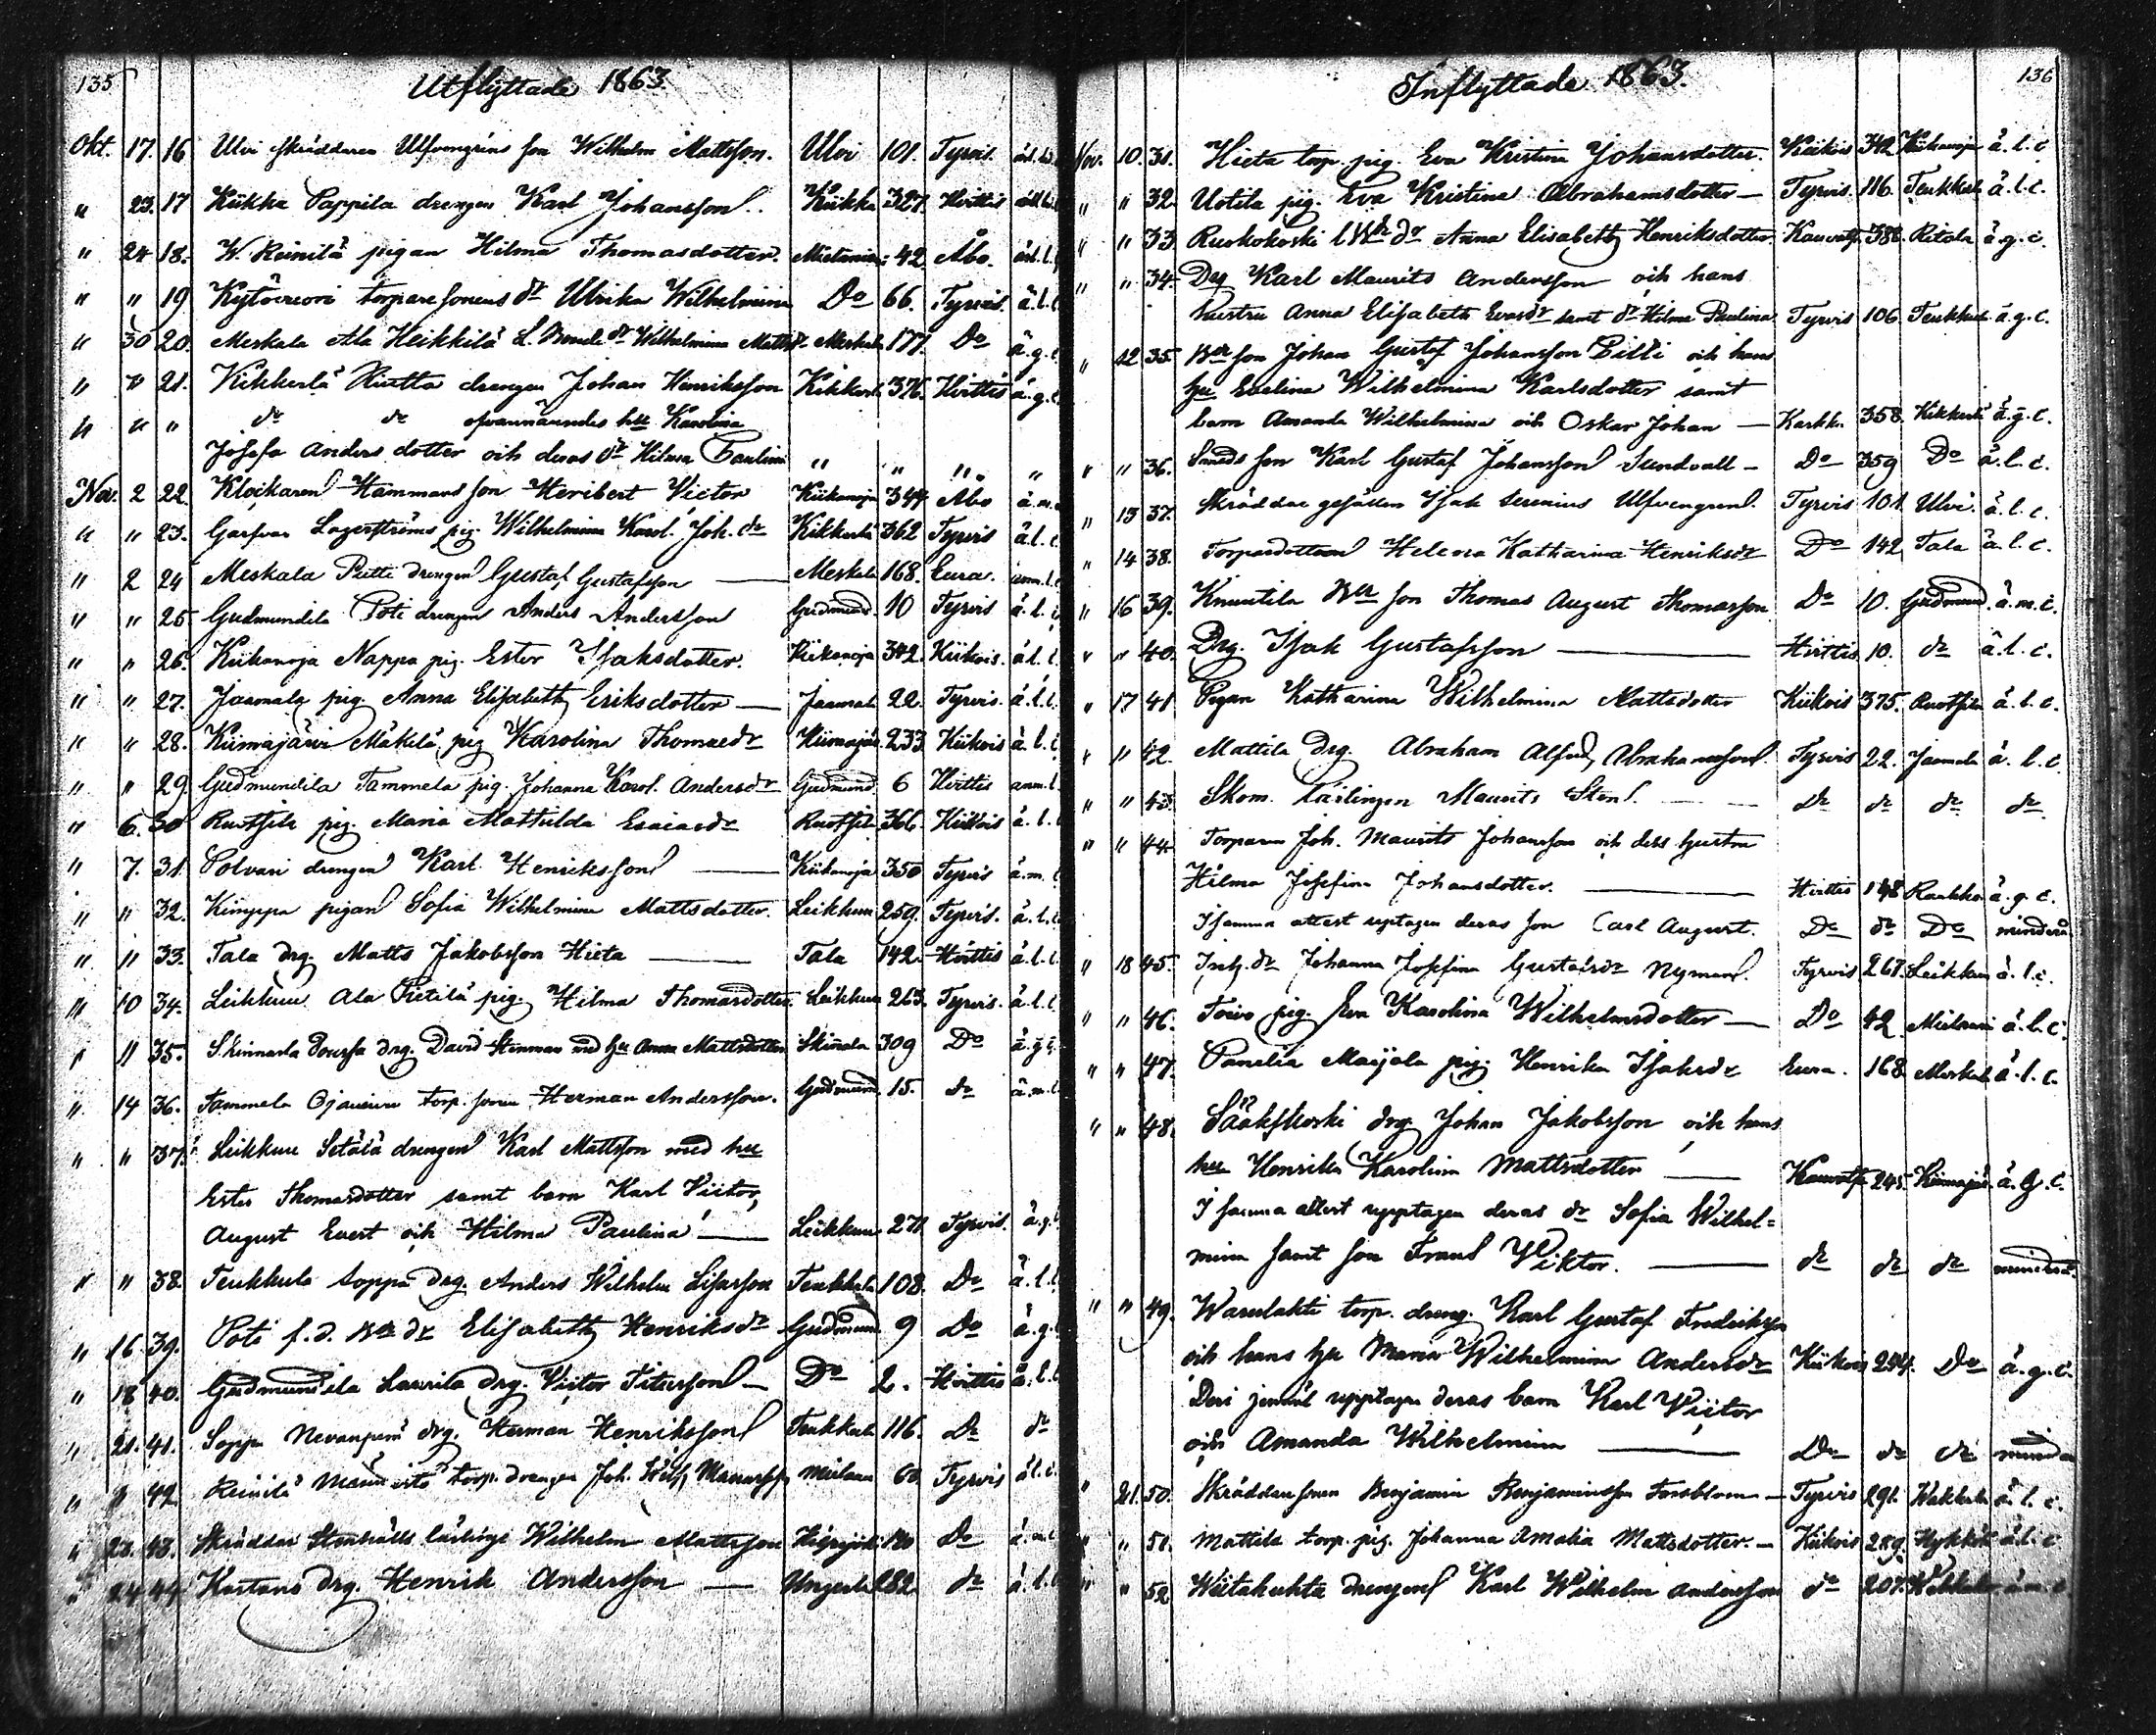 135
Utflyttade 1863.
Okt. 17. 16 Ulvi skräddaren Ulfvengrens son Wilhelm Mattsson. Ulvi 101. Tyrvis.
" 23. 17 Kiikka Pappila drengen Karl Johansson. Kiikka 327. Hvittis
" 24 18. W. Reinilä pigan Hilma Thomasdotter. 42. Åbo.
" " 19 torpare sonens dr Ulrika Wilhelmina Do 66. Tyrvis. ä.l.c
" 30 20. Meskala Ala Heikkilä L. Bonde dr Wilhelmina Mattsdr Meskala 177. Do ä.g.c
" " 21. Kikkerlä drengen Johan Henriksson Kikkerl. 376. Hvittis ä.g.c
" " " dr dr ofvannämndes hu Karolina
Josefa Anders dotter och deras dr Hilma Paulina " " " "
Nov. 2 22. Klockaren Hammars son Heribert Victor Kiikanoja 344 Åbo ä.m.
" " 23. Garfvar Lagerströms pig. Wilhelmina Karol. Joh. dr Kikkerlä 362 Tyrvis ä.l.c
" 2 24 Meskala Pietti drengen Gustaf Gustafsson — Meskala 168. Eura.
" " 25 Gudmundila Poti drengen Anders Andersson Gudmund. 10 Tyrvis ä.l.c
" " 26. Kiikanoja Nappa pig. Ester Isaksdotter. Kiikanoja 342. Kiikois. ä.l.c
" " 27. Jaamala pig. Anna Elisabeth Eriksdotter — Jaamala 22. Tyrvis. ä.l.c
" " 28. Kiimajärvi Mäkelä pig Karolina Thomasdr Kiimajär. 233. Kiikois ä.l.c
" " 29. Gudmundila Tammela pig. Johanna Karol. Andersdr Gudmund. 6 Hvittis anm.l.
" 6. 30 Ruotsila pig. Maria Mathilda Esaiasdr Ruotsila 366. Kiikois ä.l.c
" 7. 31. Polvari drengen Karl Henriksson — Kiikanoja 350 Tyrvis ä.m.c
" " 32. Kimppa pigan Sofia Wilhelmina Mattsdotter. Leikkuu 259. Tyrvis. ä.l.c
" " 33. Tala drg. Matts Jakobsson Hieta — Tala 142. Hvittis ä.l.c
" 10 34. Leikkuu Ala Pietilä pig. Hilma Thomasdotter. Leikkuu 263. Tyrvis. ä.l.c
" 11 35. Skinnarla drg. David Stenman med hu Anna Mattsdotter Skinnala 309 Do ä.g.c
" 14 36. Tammela Ojansuu torp. sonen Herman Andersson. Gudmund. 15. dr ä.m.c
" " 37. Leikkuu Setälä drengen Karl Mattsson med hu
Ester Thomasdotter samt barn Karl Victor,
August Evert och Hilma Paulina — Leikkuu 271. Tyrvis. ä.g.c
" " 38. Teukkula Soppa drg. Anders Wilhelm Lisasson Teukkula 108. Do ä.l.c
" 16. 39. Poti f.d. Bds dr Elisabeth Henriksdr Gudmund. 9 Do ä.g.c
" 18 40. Gudmundila Laurila drg. Victor Titusson — Do 2. Hvittis ä.l.c
" 21. 41. Soppa Nevanperä drg. Herman Henriksson Teukkula 116. Do dr
" " 42. Reinilä torp. drengen Joh. Wilh. 60 Tyrvis ä.l.c.
" 23. 43. Skräddar Stenhälls lärlinge Wilhelm Mattsson Do ä.m.c
" 24 44. Kustans drg. Henrik Andersson — 282. dr ä.l.c
136
Inflyttade 1863.
Nov. 10. 31. Hieta torp. pig. Eva Kristina Johansdotter. Kiikois 342 Kiikanoja ä.l.c.
" " 32. Uotila pig. Eva Kristina Abrahamsdotter — Tyrvis. 116. Teukkula ä.l.c.
" " 33. Ruokokoski dr Anna Elisabeth Henriksdotter. Kauvatsa 388. Ritala ä.g.c.
" " 34. Drg Karl Maurits Andersson och hans
hustru Anna Elisabeth Evasdr samt dr Hilma Paulina. Tyrvis 106. Teukkula ä.g.c.
" 12 35. Bds son Johan Gustaf Johansson Pilli och hans
hu Evelina Wilhelmina Karlsdotter samt
barn Amanda Wilhelmina och Oskar Johan — Karkku. 358. Kikkerlä ä.g.c.
" " 36. Smeds son Karl Gustaf Johansson Sundvall — Do 359 Do ä.l.c.
" 13 37. Skräddar gesällen Isak Serenius Ulfvengren. Tyrvis 101. Ulvi. ä.l.c.
" 14 38. Torparedottren Helena Katharina Henriksdr Do 142 Tala ä.l.c.
" 16 39. Knuutila Bds son Thomas August Thomasson Do 10. Gudmund. ä.m.c.
" " 40. Drg. Isak Gustafsson — Hvittis 10. dr ä.l.c.
" 17 41 Pigan Katharina Wilhelmina Mattsdotter Kiikois 375. Ruotsila ä.l.c.
" " 42. Mattila drg. Abraham Alfred Abrahamsson. Tyrvis 22. Jaamala ä.l.c.
" " 43. Skom. Lärlingen Maurits Sten. — dr dr dr dr
" " 44 Torparen Joh. Maurits Johansson och dess hustru
Hilma Josefina Johansdotter. — Hvittis 148 ä.g.c.
I samma attest upptagen deras son Carl August. Do dr Do minderå.
" 18 45. Inh. dr Johanna Josefina Gustafsdr Nyman. Tyrvis 267. Leikkuu ä.l.c.
" " 46. Toivo pig. Eva Karolina Wilhelmsdotter — Do 42 ä.l.c.
" " 47. Panelia Maijala pig. Henrika Isaksdr Eura. 168 Meskala ä.l.c.
" " 48. Sääkskoski drg Johan Jakobsson och hans
hu Henrika Karolina Mattsdotter — Kauvatsa 245. Kiimajär. ä.g.c.
I samma attest upptagen deras dr Sofia Wilhel=
mina samt son Frans Viktor. — dr dr dr minderå.
" " 49. torp. dreng. Karl Gustaf Fredriksson
och hans hu Maria Wilhelmina Andersdr Kiikois 254. Do ä.g.c.
Deri jemväl upptagen deras barn Karl Victor
och Amanda Wilhelmina — Do dr dr
" 21. 50. Skräddaresonen Benjamin Benjaminsson Forsblom — Tyrvis 291. ä.l.c.
" " 51. Mattila torp. pig. Johanna Amalia Mattsdotter. — Kiikois 289. ä.l.c
" " 52 drengen Karl Wilhelm Andersson dr 207.